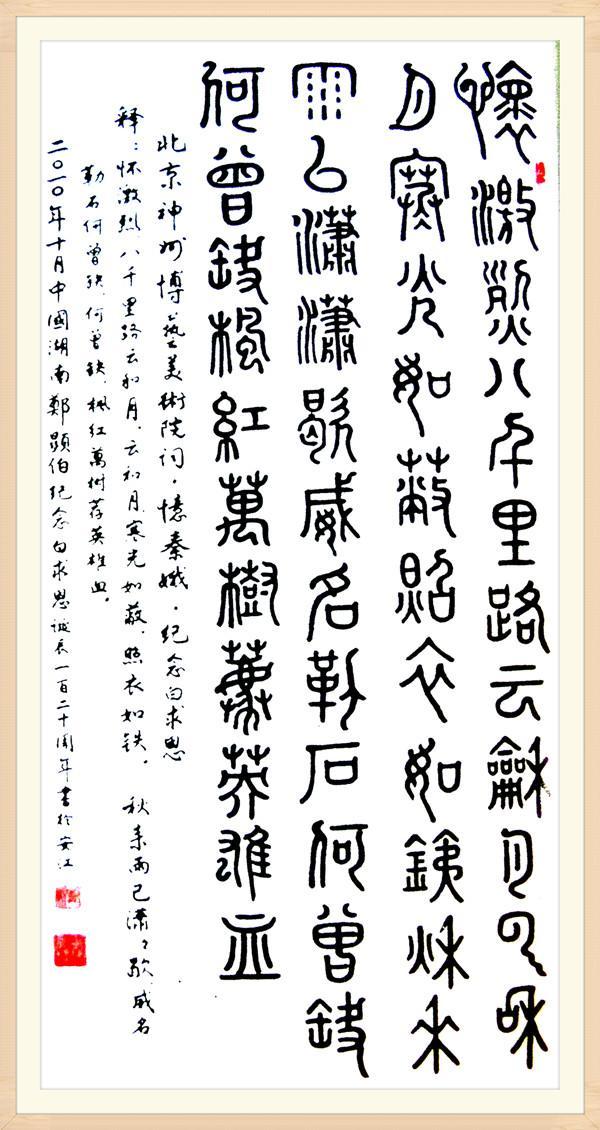 懷激烈八千里路云龢月云和
月寒光如蔽照衣如鐵秋來
雨已瀟瀟歇威名勒石何曾缺
何曾缺楓紅萬樹薦英雄血
北京神州博藝美術院词·憶秦娥·纪念白求恩
释：怀激烈八千里路云和月.云和月.寒光如蔽.照衣如铁.秋来雨已潇々歇.威名
勒石何曾缺.何曾缺.枫红萬树荐英雄血。
二〇一〇年十月中國湖南鄭顕伯纪念白求恩诞辰一百二十周年書於安江